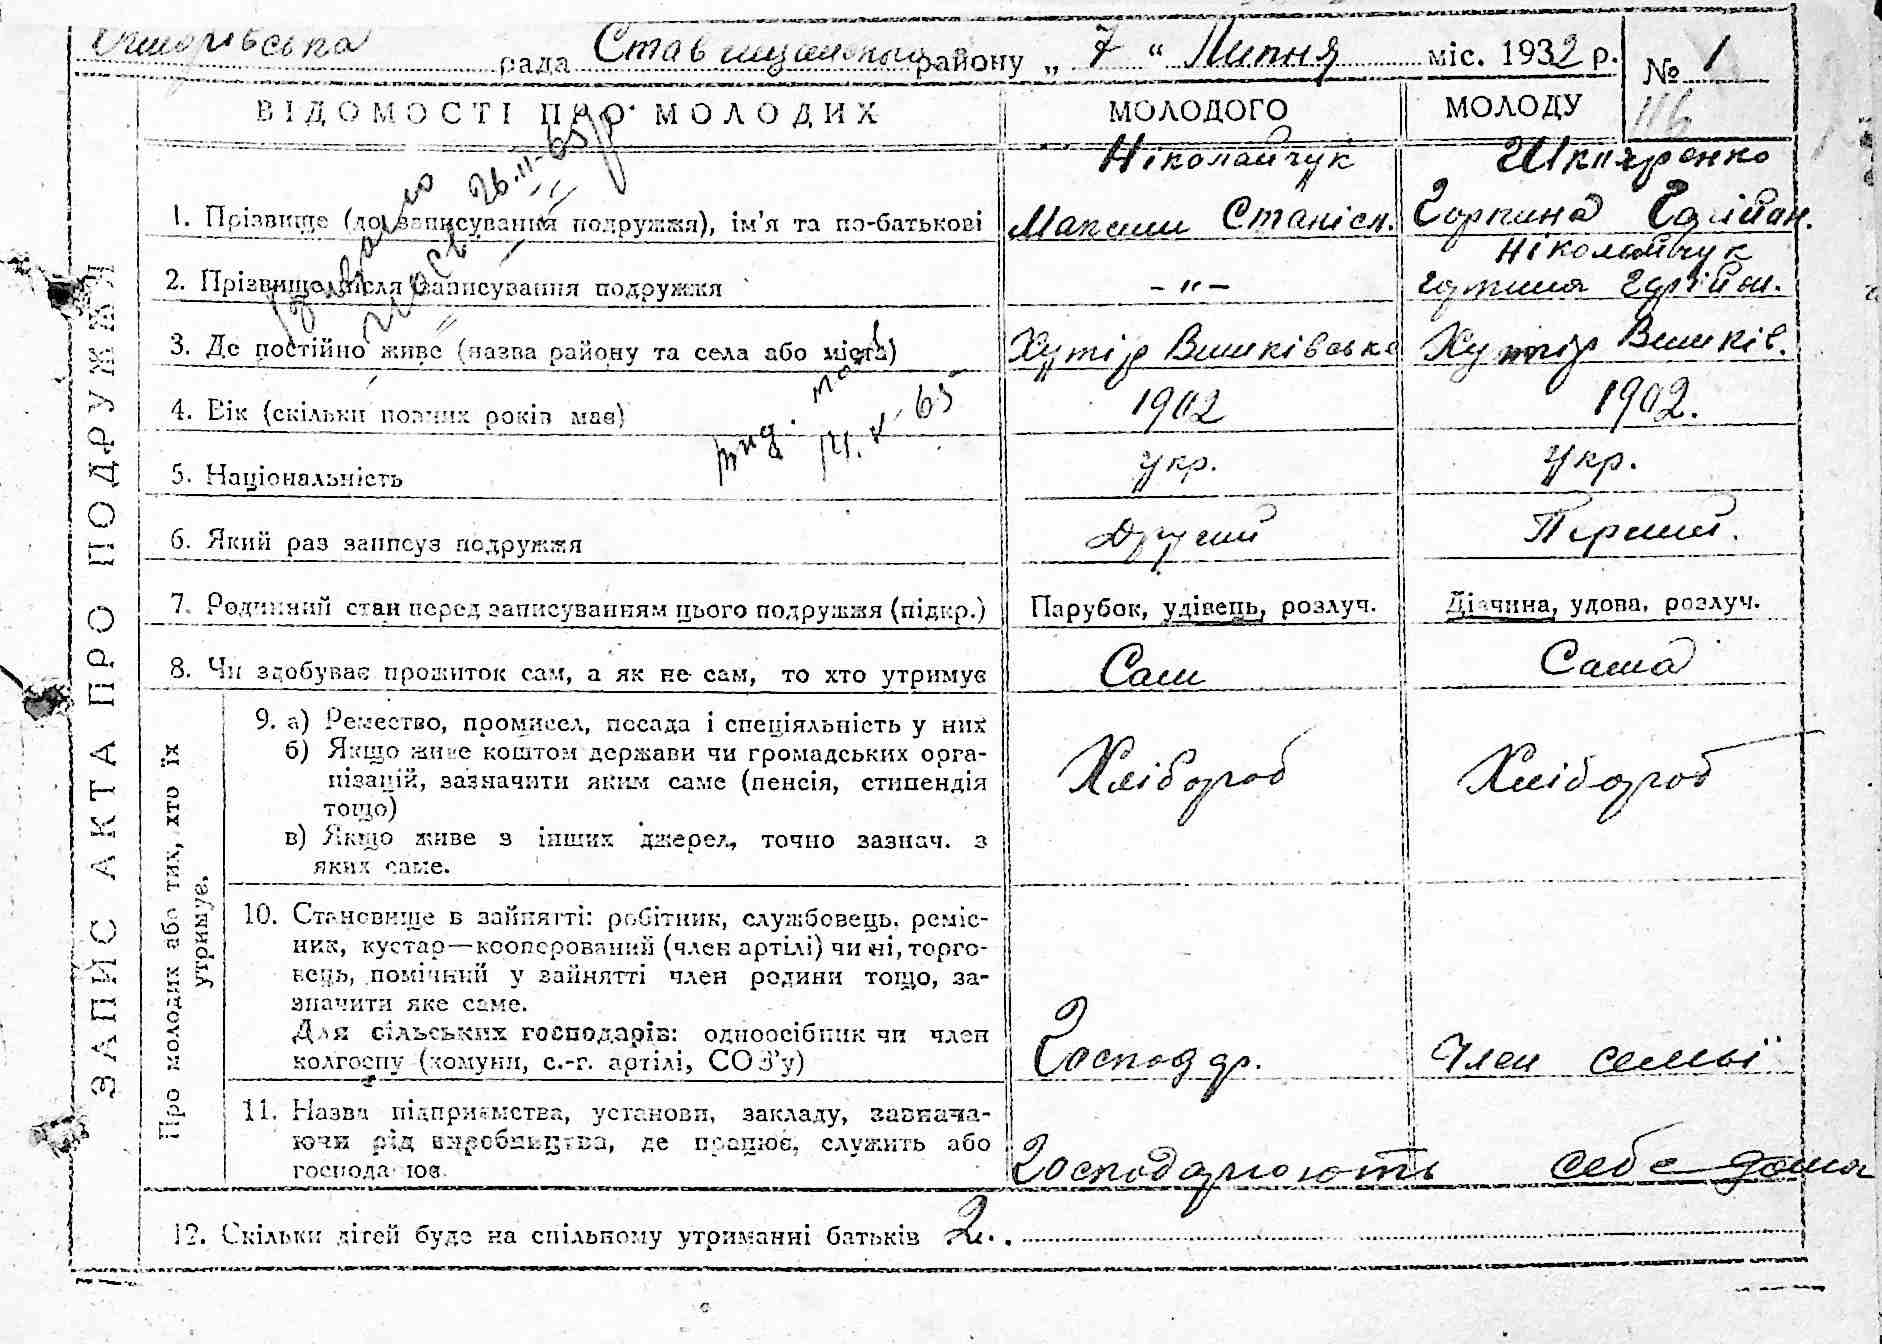 рада Ставищанського району „ 7 " Липня міс. 1932 р. № 1
116
ВІДОМОСТІ ПРО МОЛОДИХ МОЛОДОГО МОЛОДУ
Ніколайчук Шкляренко
1. Прізвище (до записування подружжя), ім'я та по-батькові Максим Станісл. Горпина
Ніколайчук
2. Прізвище після записування подружжя - " - Горпина
3. Де постійно живе (назва району та села або міста) Хутір Вишківське Хутір Вишків.
4. Вік (скільки повних років має) 1902 1902.
5. Національність укр. укр.
6. Який раз записує подружжя Другий Перший.
7. Родинний стан перед записуванням цього подружжя (підкр.) Парубок, удівець, розлуч. Дівчина, удова, розлуч.
8. Чи здобуває прожиток сам, а як не сам, то хто утримує Сам Сама
9. а) Ремество, промисел, посада і спеціяльність у них
б) Якщо живе коштом держави чи громадських орга-
нізацій, зазначити яким саме (пенсія, стипендія Хлібороб Хлібороб
тощо)
в) Якщо живе з інших джерел, точно зазнач. з
яких саме.
10. Становище в зайнятті: робітник, службовець, реміс-
ник, кустар—кооперований (член артілі) чи ні, торго-
вець, помічний у зайнятті член родини тощо, за-
значити яке саме.
Для сільських господарів: одноосібник чи член
колгоспу (комуни, с.-г. артілі, СОЗ'у) Господар. Член семьї
11. Назва підприємства, установи, закладу, зазнача-
ючи рід виробництва, де працює, служить або
господарює. Господарюють себе дома
12. Скільки дітей буде на спільному утриманні батьків 2.
ЗАПИС АКТА ПРО ПОДРУЖЖЯ
Про молодих або тих, хто їх
утримує.
26.II-65 р
14.X-65